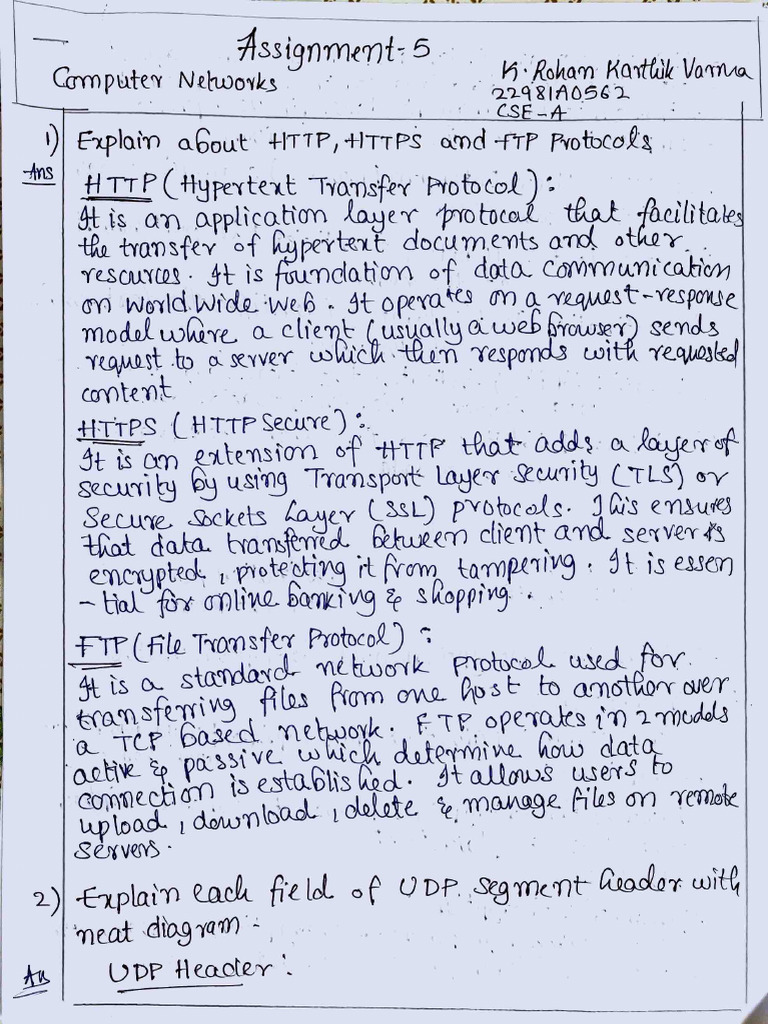 Assignment-5
Computer Networks
K. Rohan Karthik Varma
22981A0562
CSE-A
1) Explain about HTTP, HTTPS and FTP Protocols
Ans
HTTP (Hypertext Transfer Protocol):
It is an application layer protocol that facilitates
the transfer of hypertext documents and other
resources. It is foundation of data communication
on World Wide Web. It operates on a request-response
model where a client (usually a web browser) sends
request to a server which then responds with requested
content
HTTPS (HTTP Secure):
It is an extension of HTTP that adds a layer of
security by using Transport Layer Security (TLS) or
Secure Sockets Layer (SSL) protocols. This ensures
that data transferred between client and server is
encrypted, protecting it from tampering. It is essen
-tial for online banking & shopping.
FTP (File Transfer Protocol):
It is a standard network protocol used for
transferring files from one host to another over
a TCP based network. FTP operates in 2 models
active & passive which determine how data
connection is established. It allows users to
upload, download, delete & manage files on remote
servers.
2) Explain each field of UDP segment header with
neat diagram-
An
UDP Header: